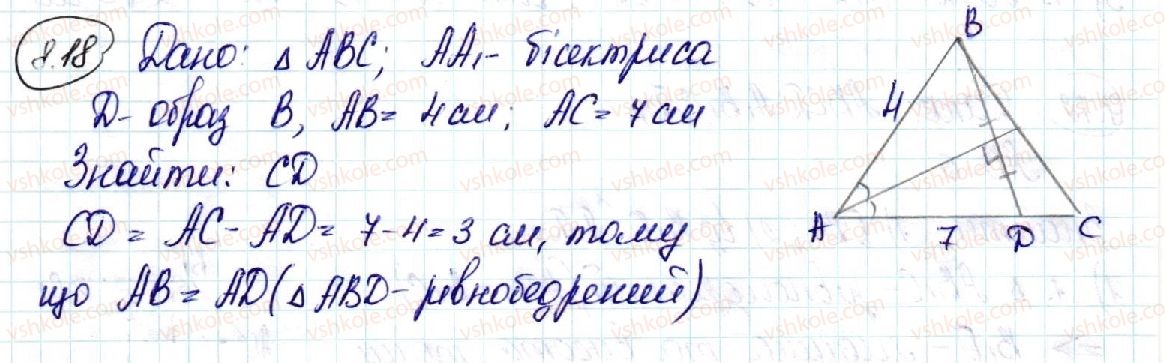 8.18 Дано: △ ABC; AA₁ - бісектриса
D - образ B, AB = 4 см; AC = 7 см
Знайти: CD
CD = AC - AD = 7 - 4 = 3 см, тому
що AB = AD (△ ABD - рівнобедрений)
B
4
A 7 D C